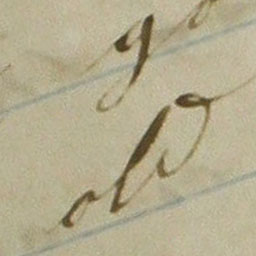 go
old